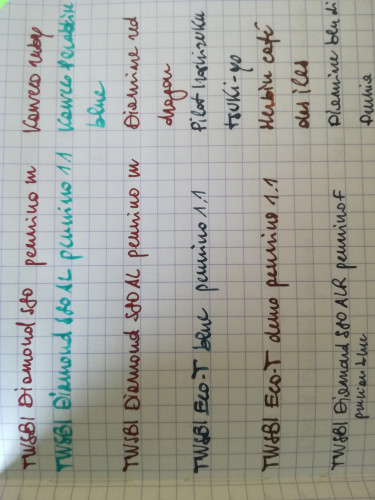 TWSBI Diamond 580 pennino M Kaweco ruby
TWSBI Diamond 580 AL pennino 1.1 Kaweco paradise
blue
TWSBI Diamond 580 AL pennino M Diamine red
dragon
TWSBI Eco-T blue pennino 1.1 Pilot Iroshizuku
tsuki-yo
TWSBI Eco-T demo pennino 1.1 Herbin café
des iles
TWSBI Diamond 580 ALR pennino F Diamine
prussian blue